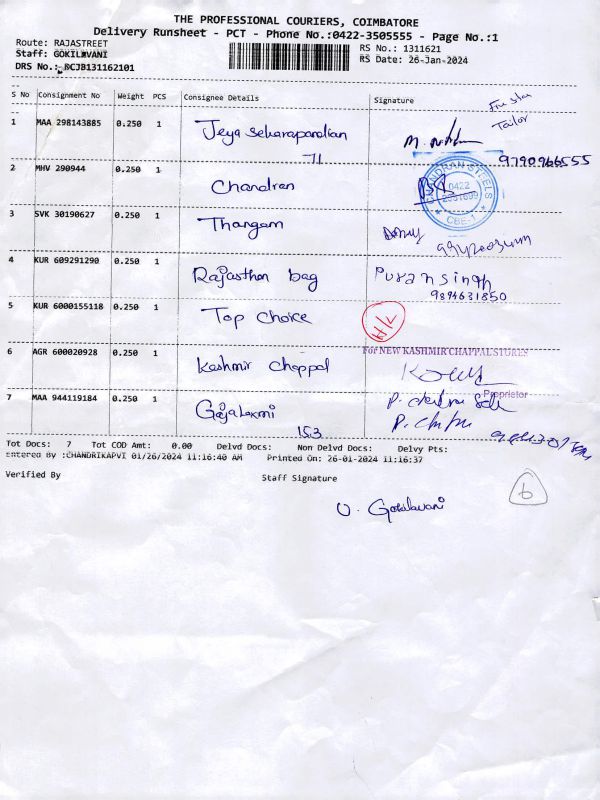 THE PROFESSIONAL COURIERS, COIMBATORE
Delivery Runsheet - PCT - Phone No.:0422-3505555 - Page No.:1
Route: RAJASTREET
RS No.: 1311621
Staff: GOKILAVANI
RS Date: 26-Jan-2024
DRS No.: BCJB131162101
S No Consignment No Weight PCS Consignee Details Signature
1 MAA 298143885 0.250 1 Jeya sekarapandian
71
Five Star
Tailor
9790966555
2 MHV 290944 0.250 1 Chandran
CHANDRAN STEELS
0422
CBE-1
3 SVK 30190627 0.250 1 Thangam
4 KUR 609291290 0.250 1 Rajasthan bag Puran singh
9894631850
5 KUR 6000155118 0.250 1 Top choice H/L
6 AGR 600020928 0.250 1 Kashmir chappal
For NEW KASHMIR CHAPPAL STORES
Proprietor
7 MAA 944119184 0.250 1 Gajalaxmi
153
Tot Docs: 7 Tot COD Amt: 0.00 Delvd Docs: Non Delvd Docs: Delvy Pts:
Entered By :CHANDRIKAPVI 01/26/2024 11:16:40 AM Printed On: 26-01-2024 11:16:37
Verified By Staff Signature
6
U. Gokilavani